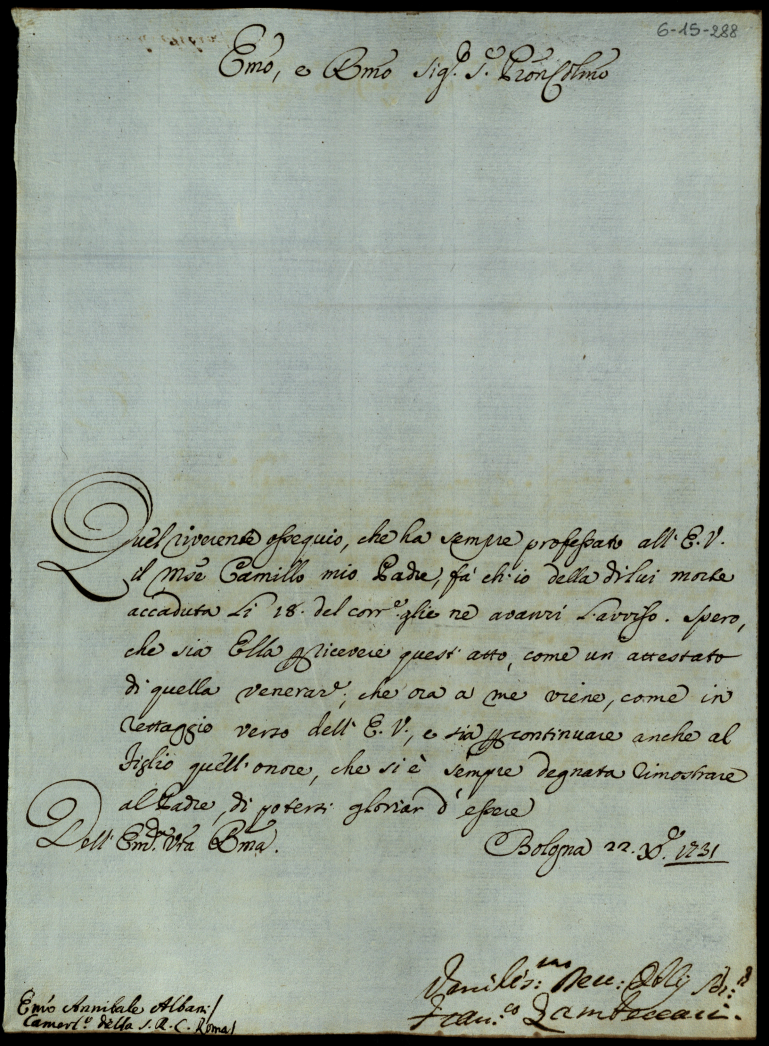 6-15-288
Emo, e Rmo Sig.r S.e Pron Colmo
Quel riverente ossequio, che ha sempre professato all' E.V.
il Mse Camillo mio Padre, fa ch' io della di lui morte
accaduta li 18. del corr.e glie ne avanzi l'avviso. Spero,
che sia Ella p ricevere quest' atto, come un attestato
di quella veneraz.e, che ora a me viene, come in
rettaggio verso dell' E.V., e sia p continuare anche al
Figlio quell' onore, che si è sempre degnata dimostrare
al Padre, di potersi gloriar d' essere
Dell' Em.a Vra Rma.
Bologna 22. Xb.e 1731
Umiliss:mo Dev: Obb
Fran.co Zambeccari.
Emo Annibale Albani
Camerl.o della S.R.C. Roma